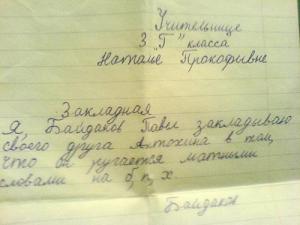 Учительнице
3 "Г" класса
Наташе Прокофьвне
Закладная
Я, Байдаков Павел закладываю
своего друга Антохина в том,
что он ругается матными
словами на б, п, х.
Байдаков